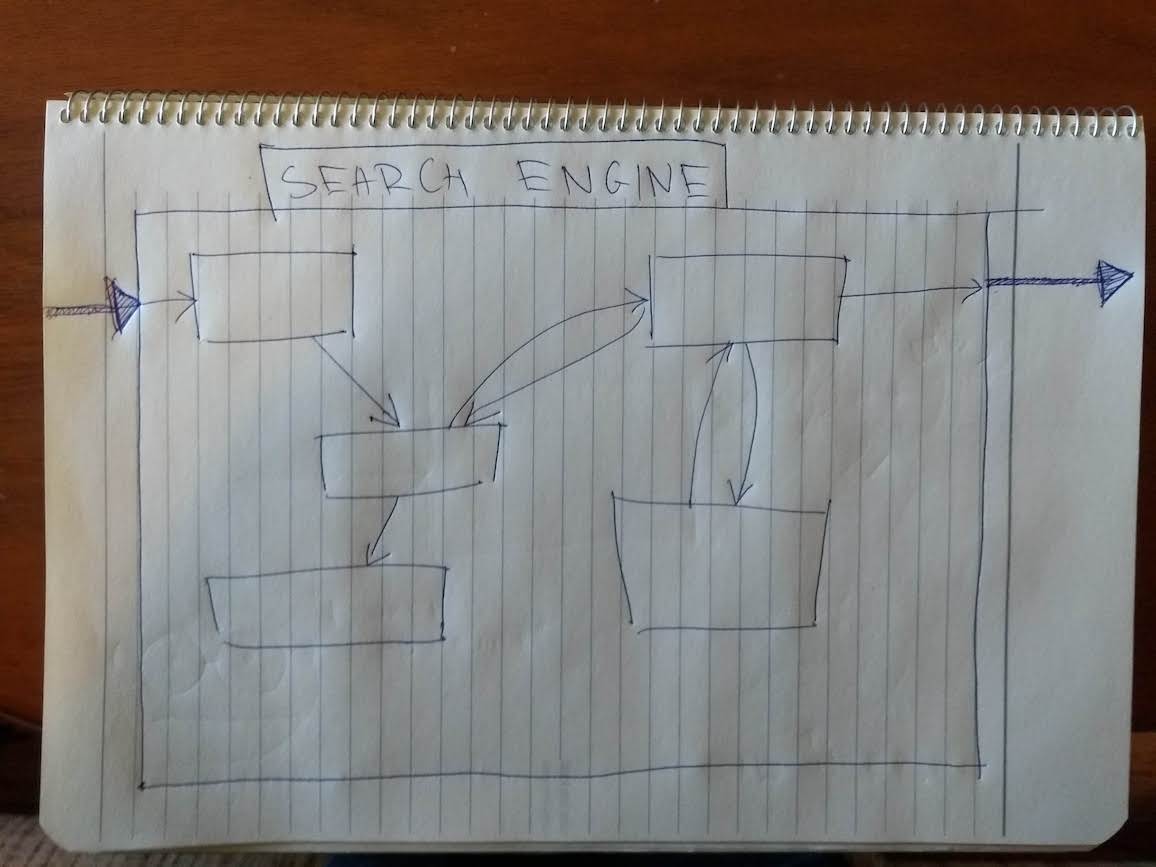 SEARCH ENGINE